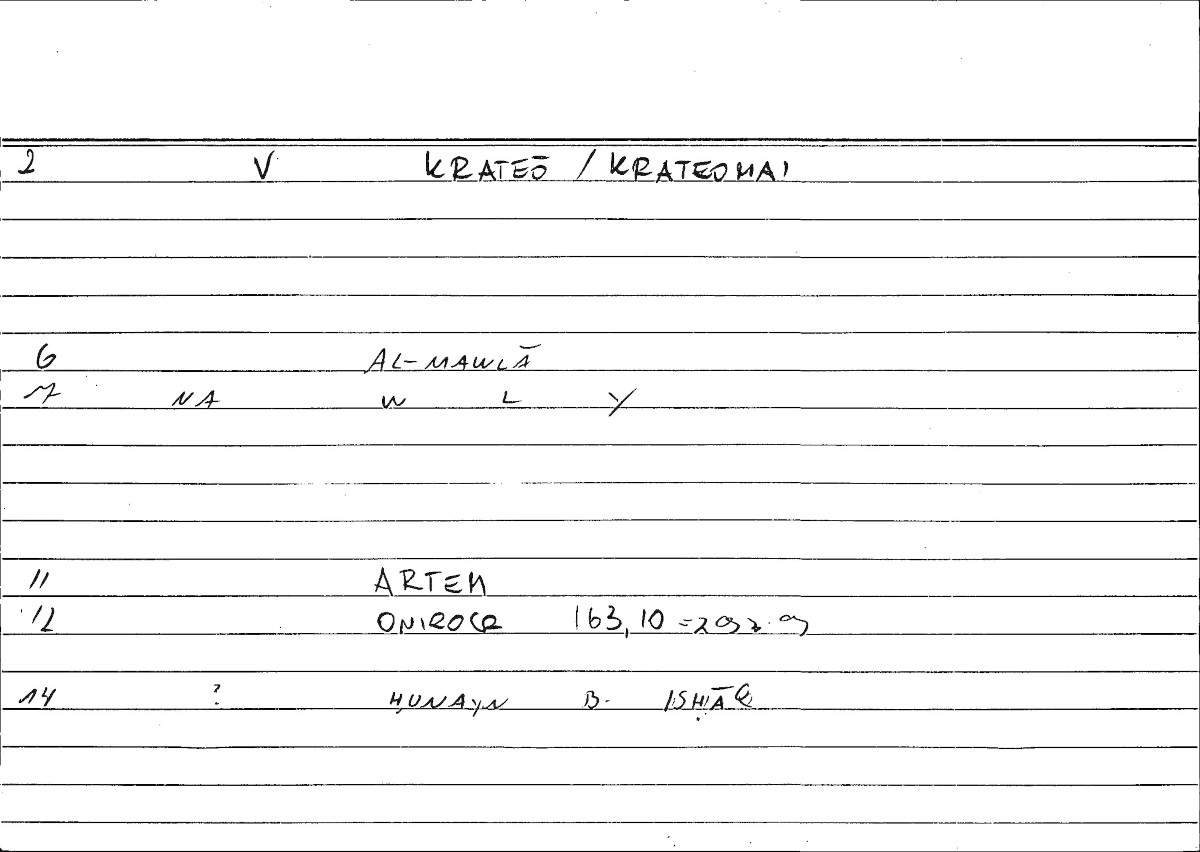 2 V KRATEŌ / KRATEOMAI
6 AL-MAWLĀ
7 NA W L Y
11 ARTEM
12 ONIROCR 163,10 =
14 ? ḤUNAYN B. ISḤĀQ